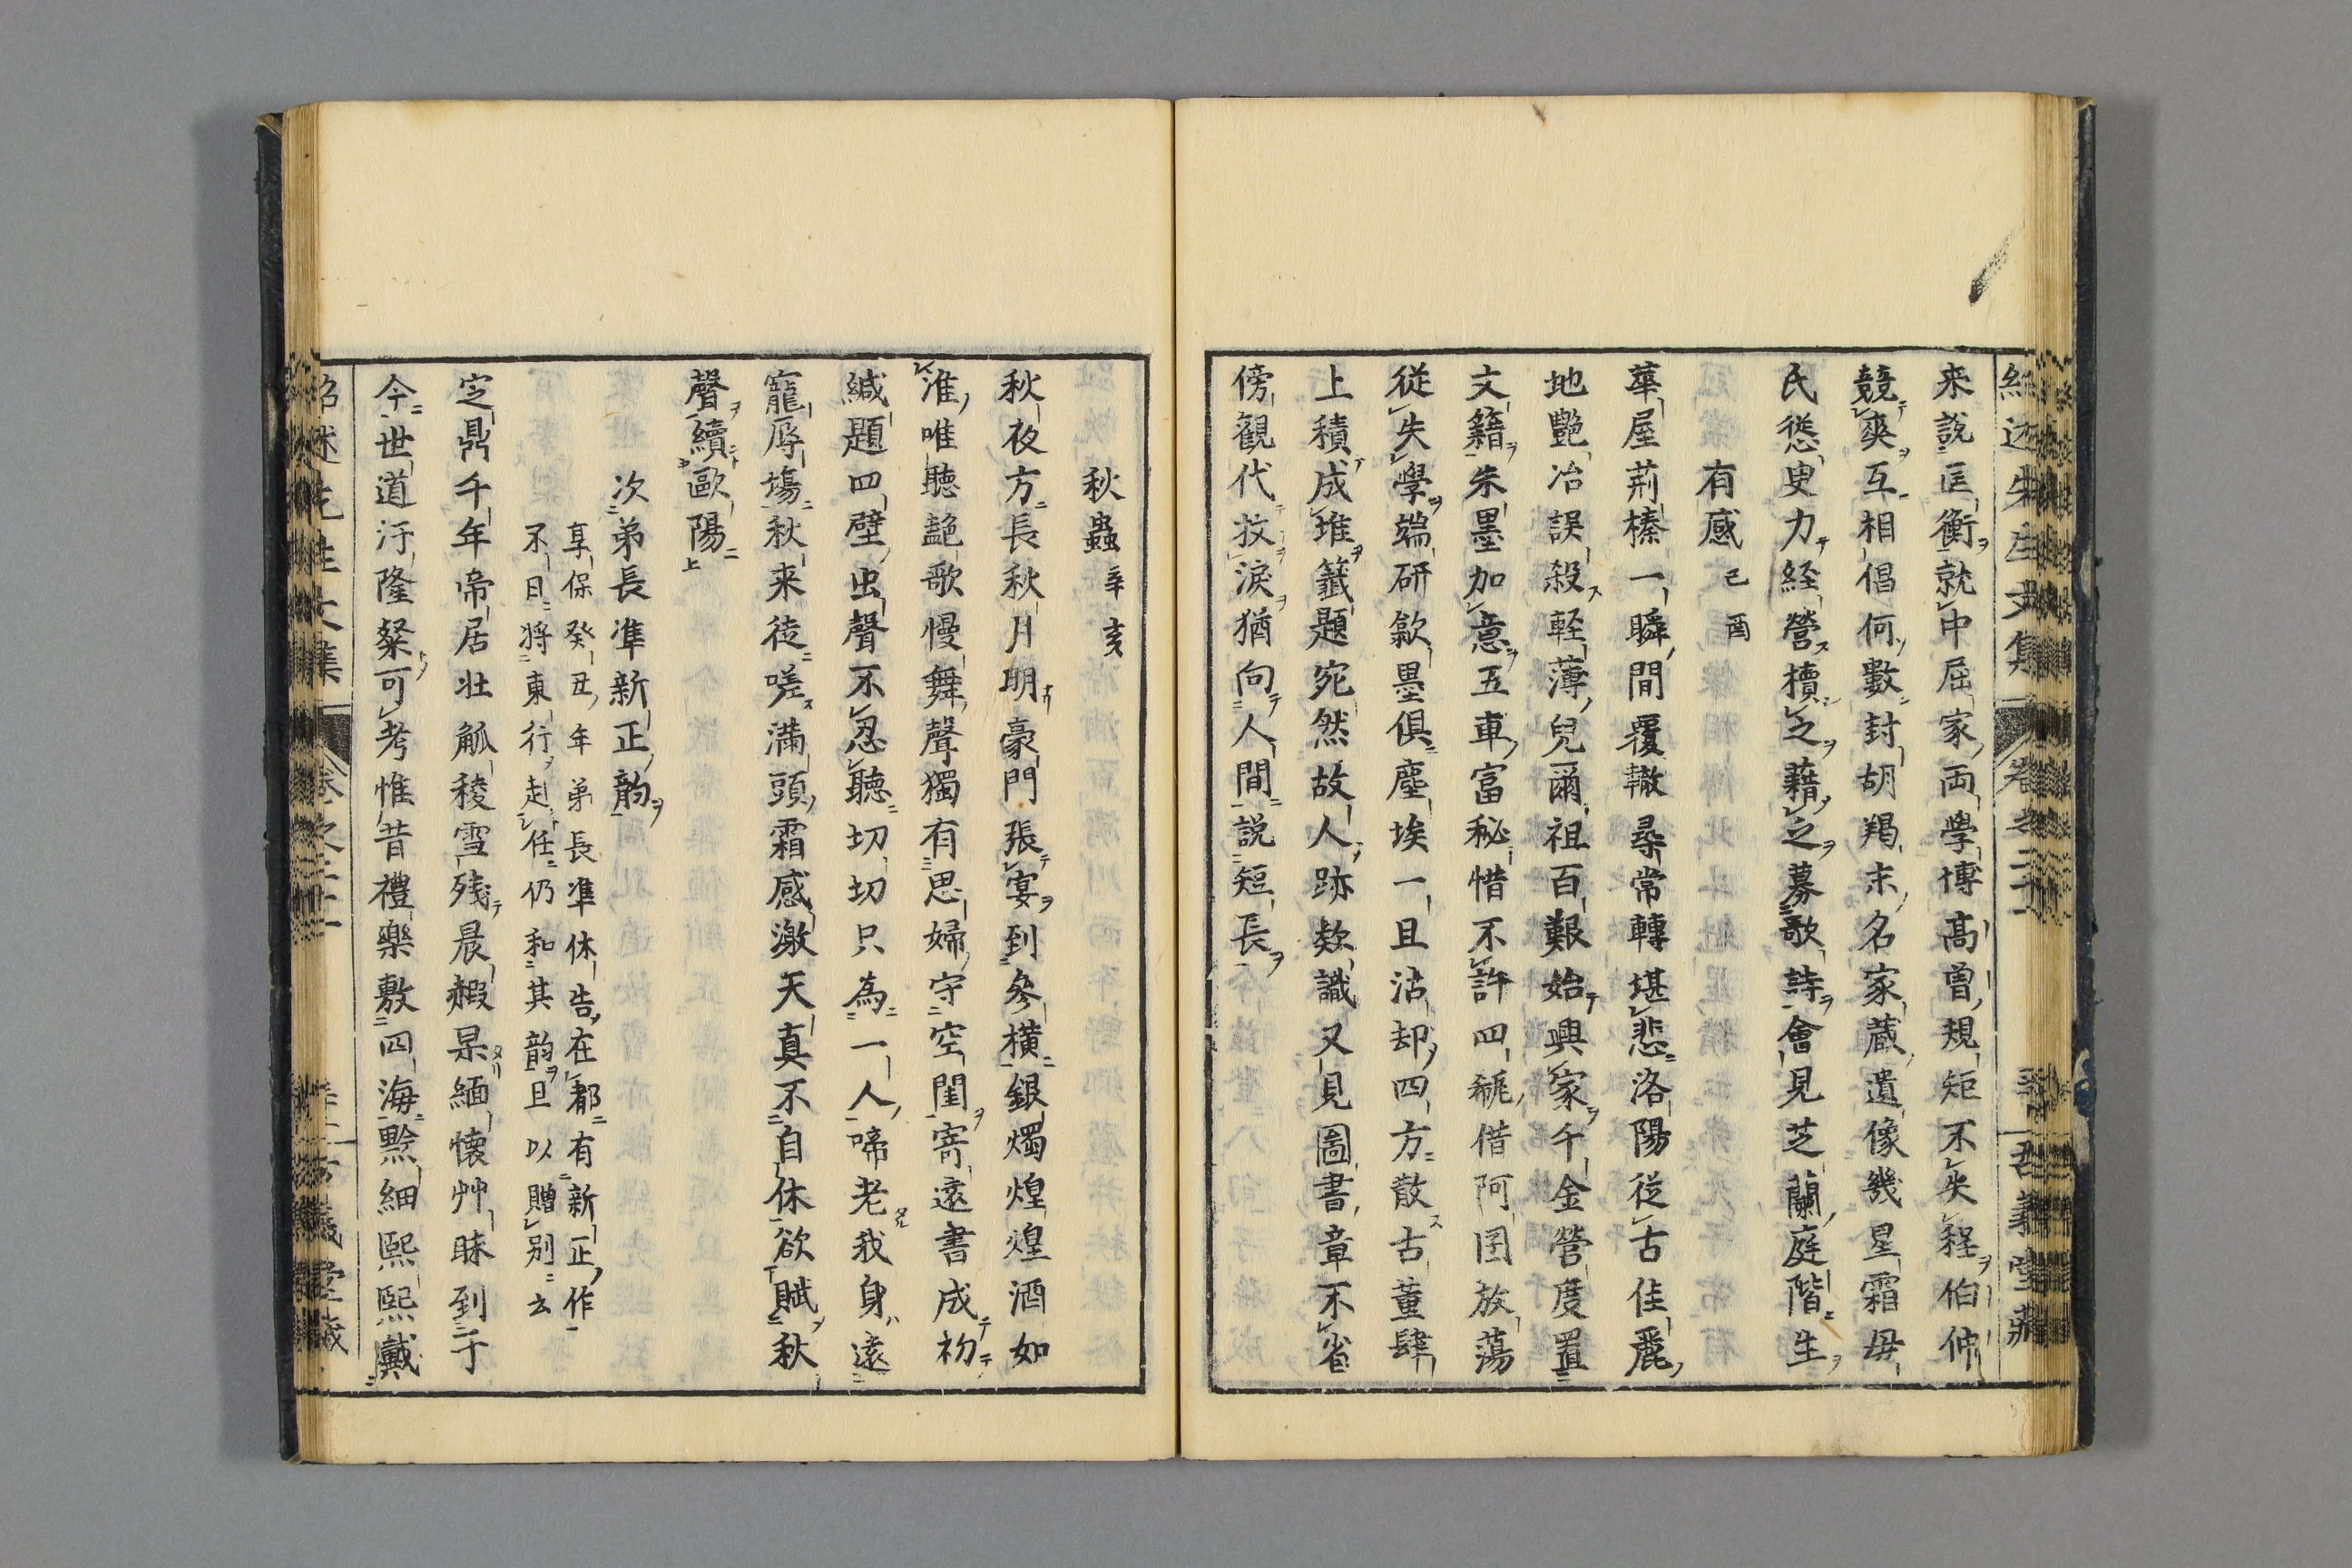 来說匡衡就中屈家両學博高曽規矩不失程伯仲
競爽互相倡何數封胡羯末名家蔵遺像幾星霜毋
氏慫叟力経營檟之藉之募歌詩會見芝蘭庭階生
有感 己酉
華屋荊榛一瞬間覆轍尋常轉堪悲洛陽従古佳麗
地艷冶誤殺軽薄兒爾祖百艱始興家千金營度置
文籍朱墨加意五車富秘惜不許四瓻借阿囝放蕩
従失學端研歙墨俱塵埃一旦沽却四方散古董肆
上積成堆籤題宛然故人跡欵識又見圖書章不省
傍観代抆淚猶向人間說短長
秋蟲 辛亥
秋夜方長秋月明豪門張宴到參橫銀燭煌煌酒如
淮唯聽艶歌慢舞聲獨有思婦守空閨寄遠書成初
緘題四壁虫聲不忍聽切切只為一人啼老我身遠
寵辱場秋来徒嗟満頭霜感激天真不自休欲賦秋
聲續歐陽
次弟長準新正韵
享保癸丑年弟長準休告在都有新正作
不日将東行走任仍和其韵且以贈别云
定鼎千年帝居壮觚稜雪残晨赮杲緬懐艸昧到于
今世道汙隆粲可考惟昔禮樂敷四海黔細熙熙戴